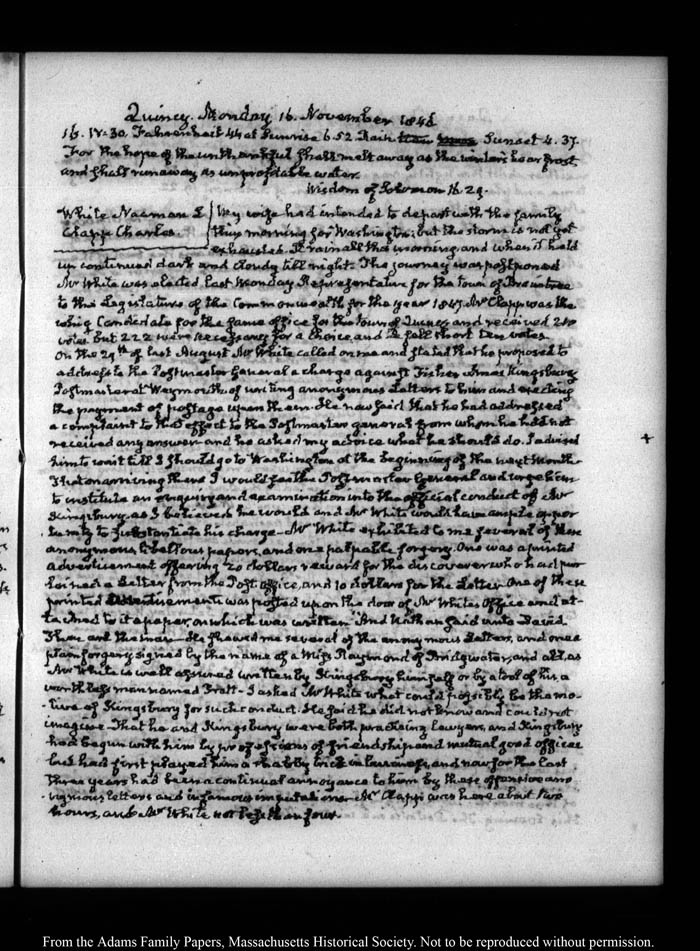 Quincy. Monday 16. November 1846
16. IV-30. Fahrenheit 44 at Sunrise 6.52 Rain Sunset 4.37.
For the hope of the unthankful shall melt away as the winter's hoar frost,
and shall run away as unprofitable water.
Wisdom of Solomon 16.29.
White Naaman L My wife had intended to depart with the family
Clapp Charles. this morning for Washington; but the storm is not yet
exhausted. It rain all this morning and when it held
up continued dark and cloudy till night. The journey was postponed
Mr White was elected last Monday Representative for the town of Braintree
to the Legislature of the Commonwealth for the year 1847. Mr Clapp was the
whig Candidate for the same office for the town of Quincy and received 210
votes but 222 were necessary for a choice and he fell short ten votes
On the 29th of last August Mr White called on me and stated that he proposed to
address to the Postmaster General a charge against Fisher Ames Kingsbury
Postmaster at Weymouth of writing anonymous Letters to him and exacting
the payment of postage upon them. He now said that he had addressed
a complaint to that effect to the Postmaster general from whom he had not
received any answer and he asked my advice what he should do. I advised
him to wait till I should go to Washington at the beginning of the next month
That on arriving there I would see the Postmaster General and urge him
to institute an enquiry and examination into the official conduct of Mr
Kingsbury as I believed he would and Mr White would have ample oppor
tunity to substantiate his charge. Mr White exhibited to me several of these
anonymous libellous papers, and one palpable forgery. One was a printed
advertisement offering 20 dollars reward for the discoverer who had pur
loined a Letter from the Post office, and 10 dollars for the Letter. One of these
printed advertisements was posted upon the door of Mr White's Office and at-
tached to it a paper, on which was written "And Nathan said unto David
Thou art the man. He shewed me several of the anonymous Letters, and one a
plain forgery signed by the name of a Miss Raymond of Bridgwater, and all, as
Mr White is well assured written by Kingsbury himself or by a tool of his, a
worthless man named Pratt. I asked Mr White what could possibly be the mo-
tive of Kingsbury for such conduct. He said he did not know and could not
imagine. That he and Kingsbury were both practising lawyers, and Kingsbury
had begun with him by professions of friendship and mutual good offices
but had first played him a shabby trick in business, and now for the last
three years had been a continual annoyance to him by these offensive ano
nymous letters and infamous imputations. Mr Clapp was here about two
hours, and Mr White not less than four.
From the Adams Family Papers, Massachusetts Historical Society. Not to be reproduced without permission.